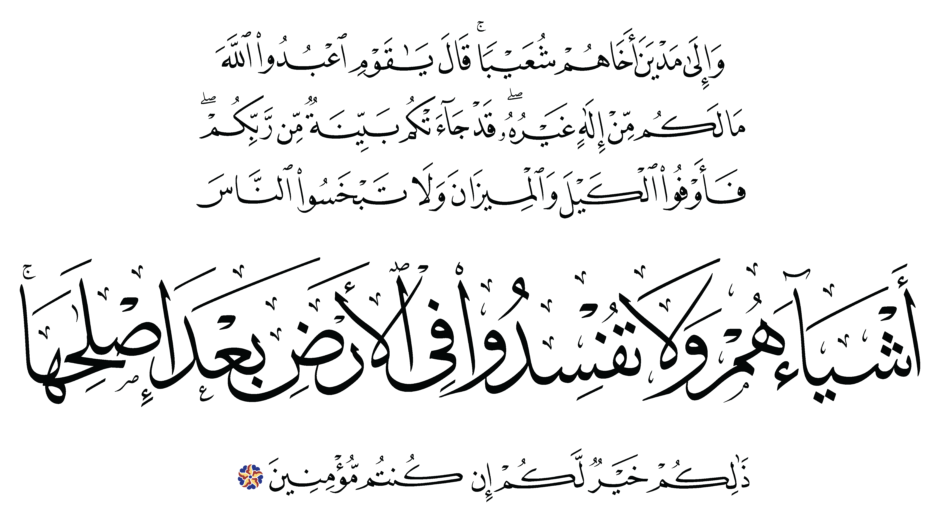 وَإِلَىٰ مَدْيَنَ أَخَاهُمْ شُعَيْبًا ۚ قَالَ يَـٰقَوْمِ ٱعْبُدُوا۟ ٱللَّهَ
مَا لَكُم مِّنْ إِلَـٰهٍ غَيْرُهُۥ ۖ قَدْ جَآءَتْكُم بَيِّنَةٌ مِّن رَّبِّكُمْ ۖ
فَأَوْفُوا۟ ٱلْكَيْلَ وَٱلْمِيزَانَ وَلَا تَبْخَسُوا۟ ٱلنَّاسَ
أَشْيَآءَهُمْ وَلَا تُفْسِدُوا۟ فِى ٱلْأَرْضِ بَعْدَ إِصْلَـٰحِهَا ۚ
ذَٰلِكُمْ خَيْرٌ لَّكُمْ إِن كُنتُم مُّؤْمِنِينَ